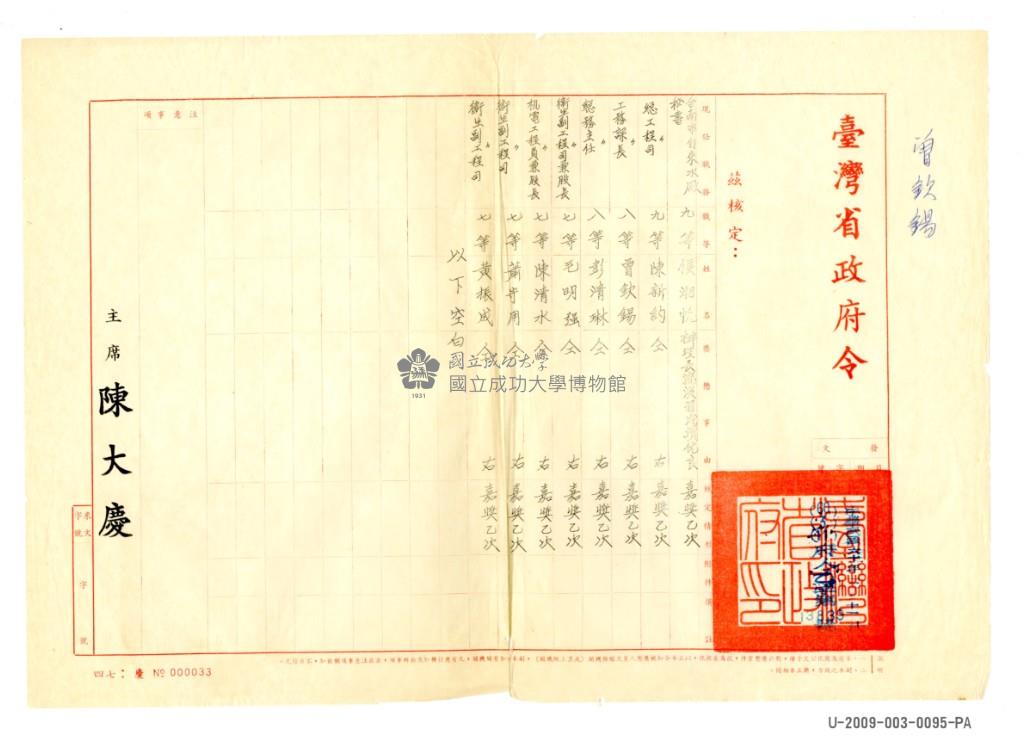 曾欽錫
臺灣省政府令
發文
茲核定：
現任職務 職等 姓名 獎懲事由 核定情形 附件 備註
台南市自來水廠秘書 九等 侯湘忱 嘉獎乙次
〃總工程司 九等 陳新約 仝右 嘉獎乙次
〃工務課長 八等 曾欽錫 仝右 嘉獎乙次
總務主任 八等 彭清琳 仝右 嘉獎乙次
衛生副工程司兼股長 七等 毛明強 仝右 嘉獎乙次
〃机電工程員兼股長 七等 陳清水 仝右 嘉獎乙次
〃衛生副工程司 七等 蕭守用 仝右 嘉獎乙次
〃衛生副工程司 七等 黃振成 仝右 嘉獎乙次
以下空白
注意事項
主席 陳大慶
來文字號
字
號
臺灣省政府印
13835
四七：慶 № 000033
國立成功大學
國立成功大學博物館
1931
U-2009-003-0095-PA